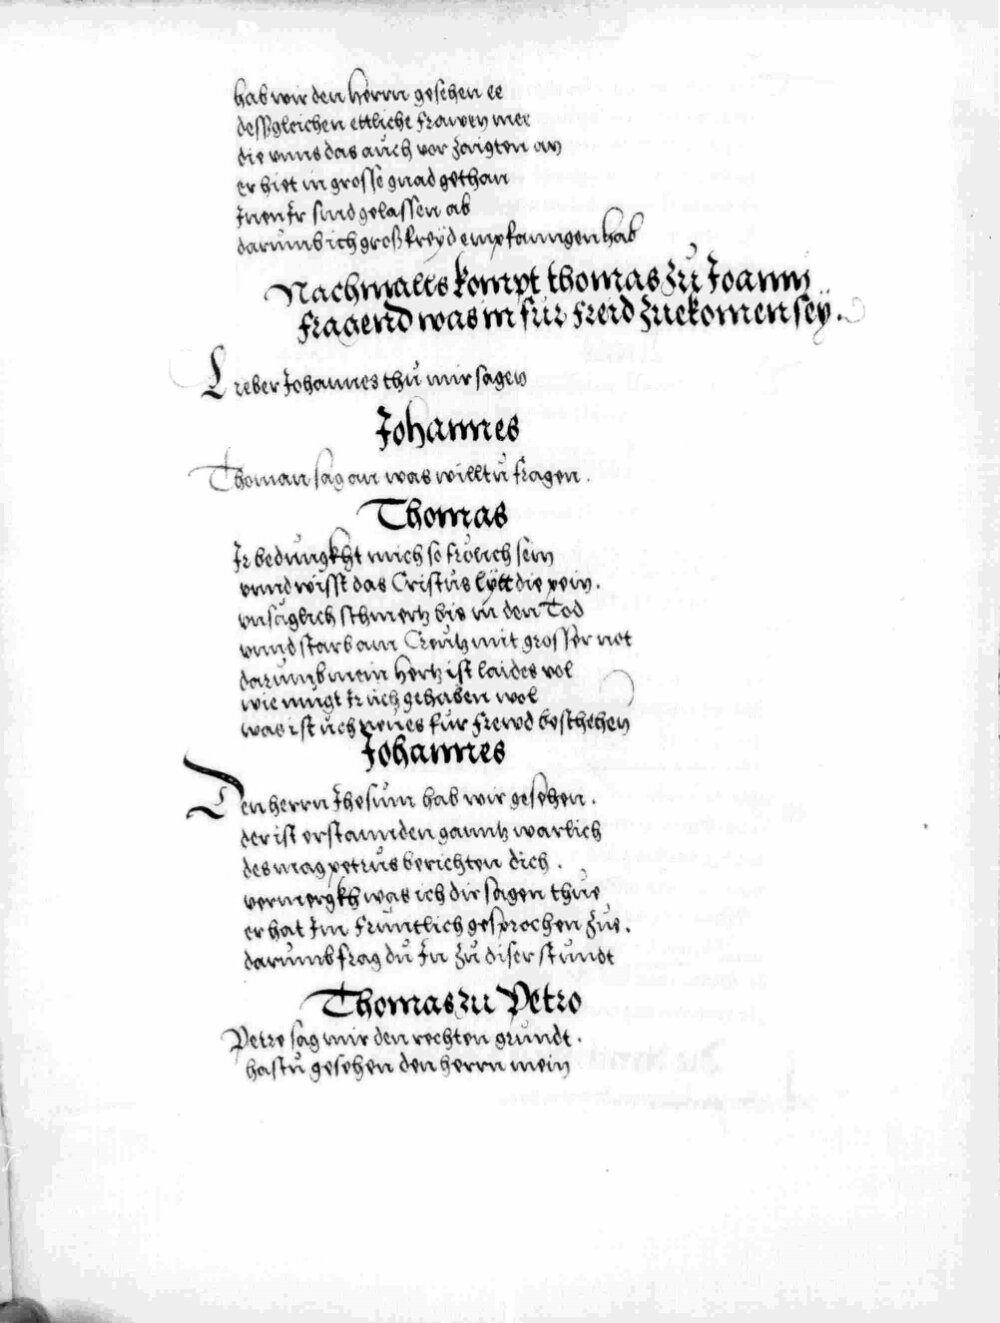 hab wir den herrn gesehen ee
dessgleichen ettliche frawen mer
die vnns das auch vor zaigten an
er hiet in grosse gnad gethan
Jnen Jr sind gelassen ab
darumb ich groß freyd empfanngen hab
Nachmalls kompt thomas zu Joann
fragend was in für freid zuekomen sey.
Lieber Johannes thu mir sagen
Johannes
Thoman sag an was willtu fragen.
Thomas
Jr bedungkht mich so frölich sein
vnnd wisst das Cristus lytt die pein.
vnsäglich schmertz bis in den Tod
vnnd starb am Creutz mit grosser not
darumb mein hertz ist laides vol
wie mugt Jr uch gehaben wol
was ist uch neues für frewd beschehen
Johannes
Den herrn Jhesum hab wir gesehen.
der ist erstannden ganntz warlich
des mag petrus berichten dich.
vermergkh was ich dir sagen thue
er hat Jm fruntlich gesprochen zue.
darumb frag du Jn zu diser stundt
Thomas zu Petro
Petre sag mir den rechten grundt.
hastu gesehen den herrn mein